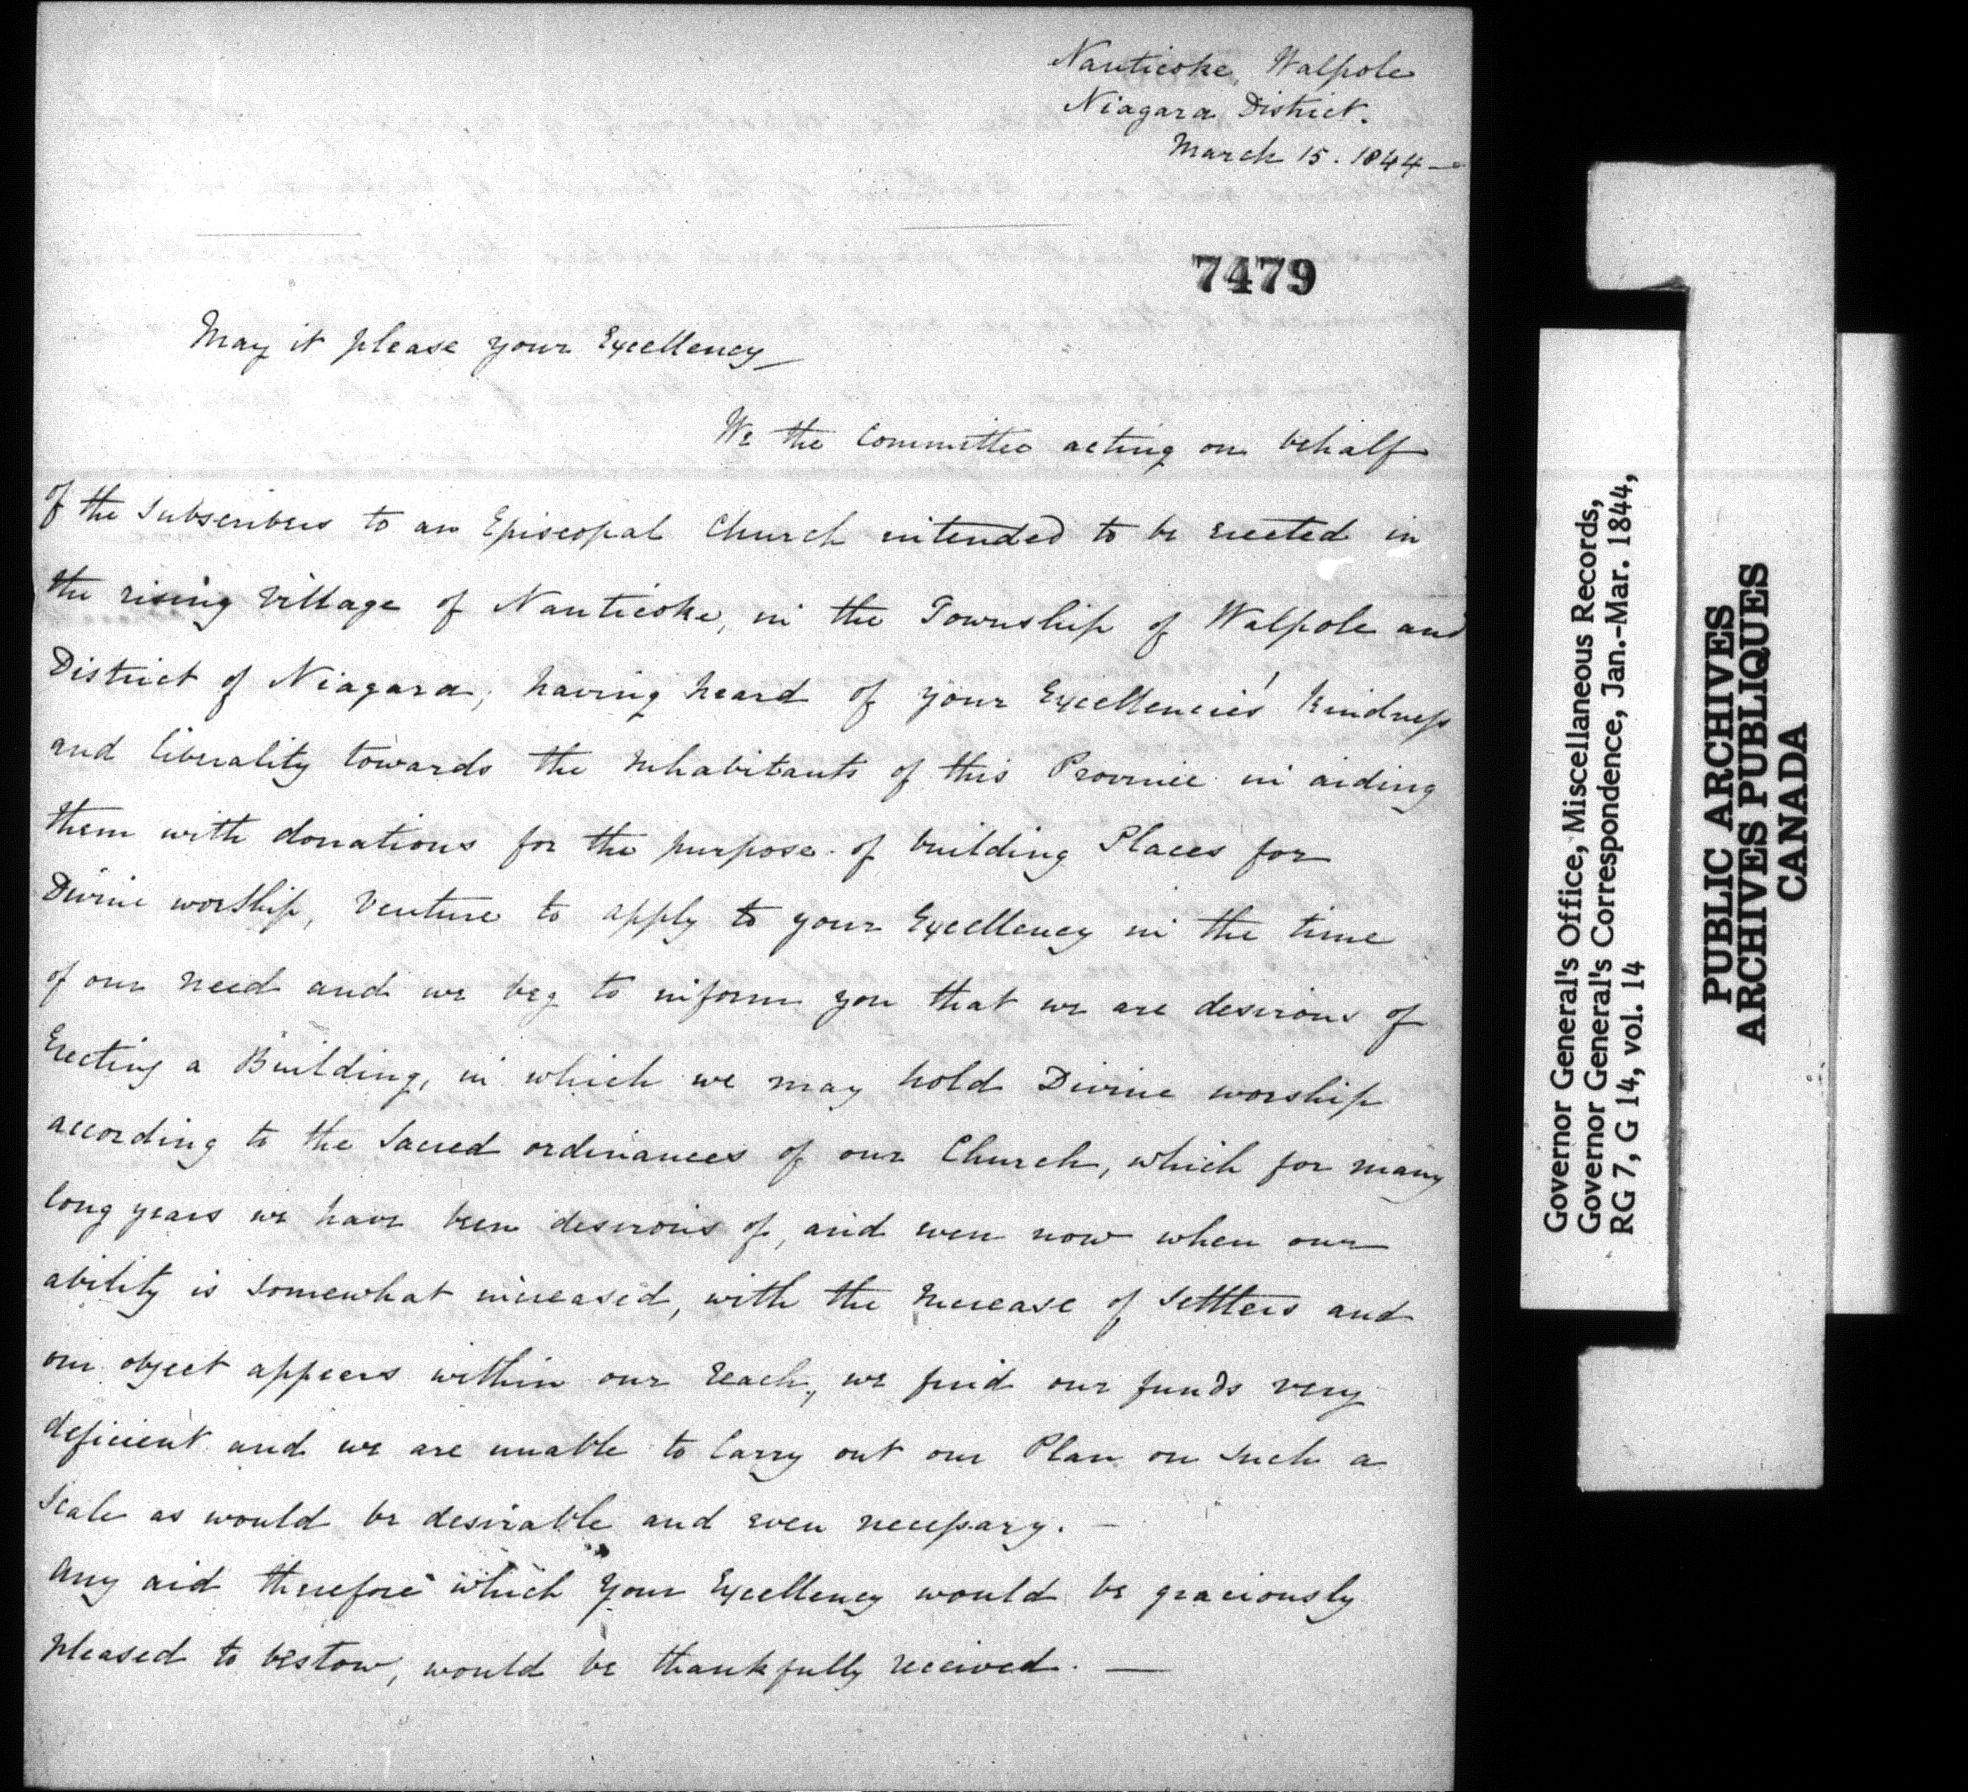 Nanticoke, Walpole
Niagara District.
March 15. 1844 —
7479
May it please your Excellency —
We the Committee acting on behalf
of the Subscribers to an Episcopal Church intended to be erected in
the rising Village of Nanticoke, in the Township of Walpole and
District of Niagara, having heard of your Excellencies' Kindness
and liberality towards the Inhabitants of this Province in aiding
them with donations for the purpose of building Places for
Divine worship, Venture to apply to your Excellency in the time
of our need and we beg to inform you that we are desirous of
Erecting a Building, in which we may hold Divine worship
according to the Sacred ordinances of our Church, which for many
long years we have been desirous of, and even now when our
ability is somewhat increased, with the Increase of Settlers and
our object appears within our reach, we find our funds very
deficient and we are unable to Carry out our Plan on such a
Scale as would be desirable and even necessary. —
Any aid therefore which Your Excellency would be graciously
pleased to bestow, would be thankfully received. —
Governor General's Office, Miscellaneous Records,
Governor General's Correspondence, Jan.-Mar. 1844,
RG 7, G 14, vol. 14
PUBLIC ARCHIVES
ARCHIVES PUBLIQUES
CANADA